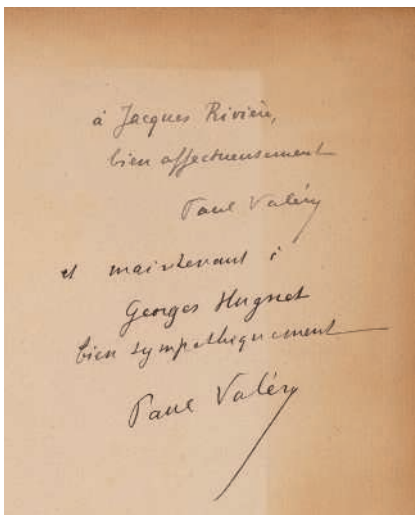 à Jacques Rivière,
bien affectueusement
Paul Valéry
et maintenant à
Georges Hugnet
bien sympathiquement
Paul Valéry